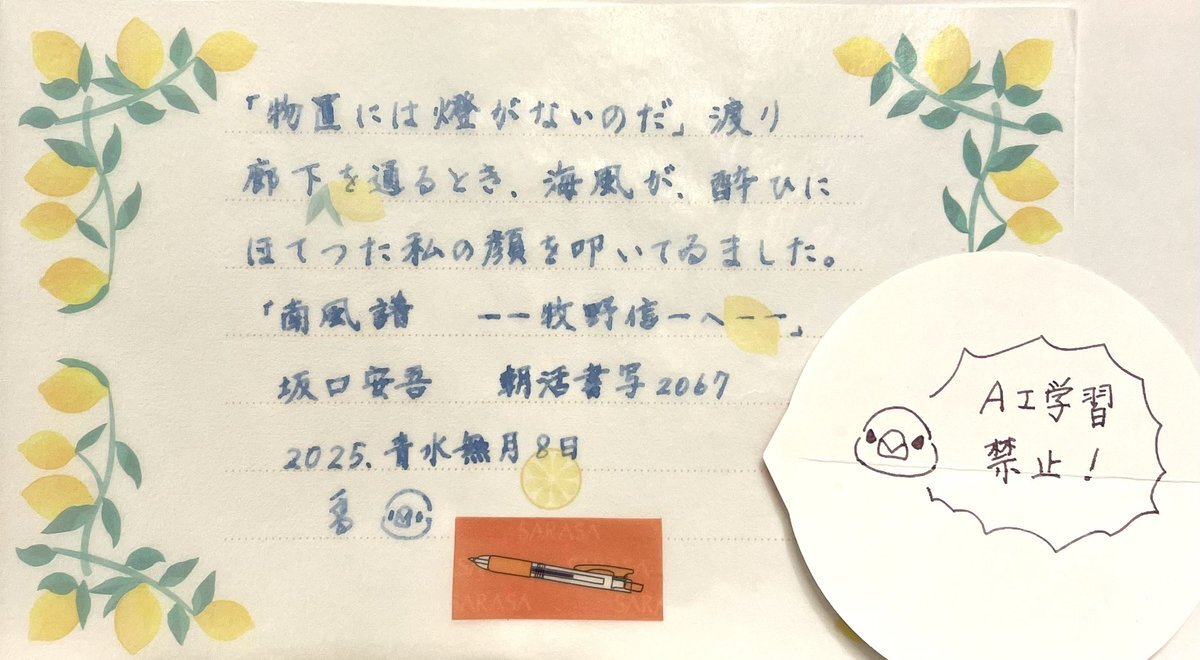 「物置には燈がないのだ」渡り
廊下を通るとき、海風が、酔ひに
ほてつた私の顔を叩いてゐました。
「南風譜 ーー牧野信一へーー」
坂口安吾 朝活書写2067
2025、青水無月8日
AI学習
禁止!
SARASA
SARASA